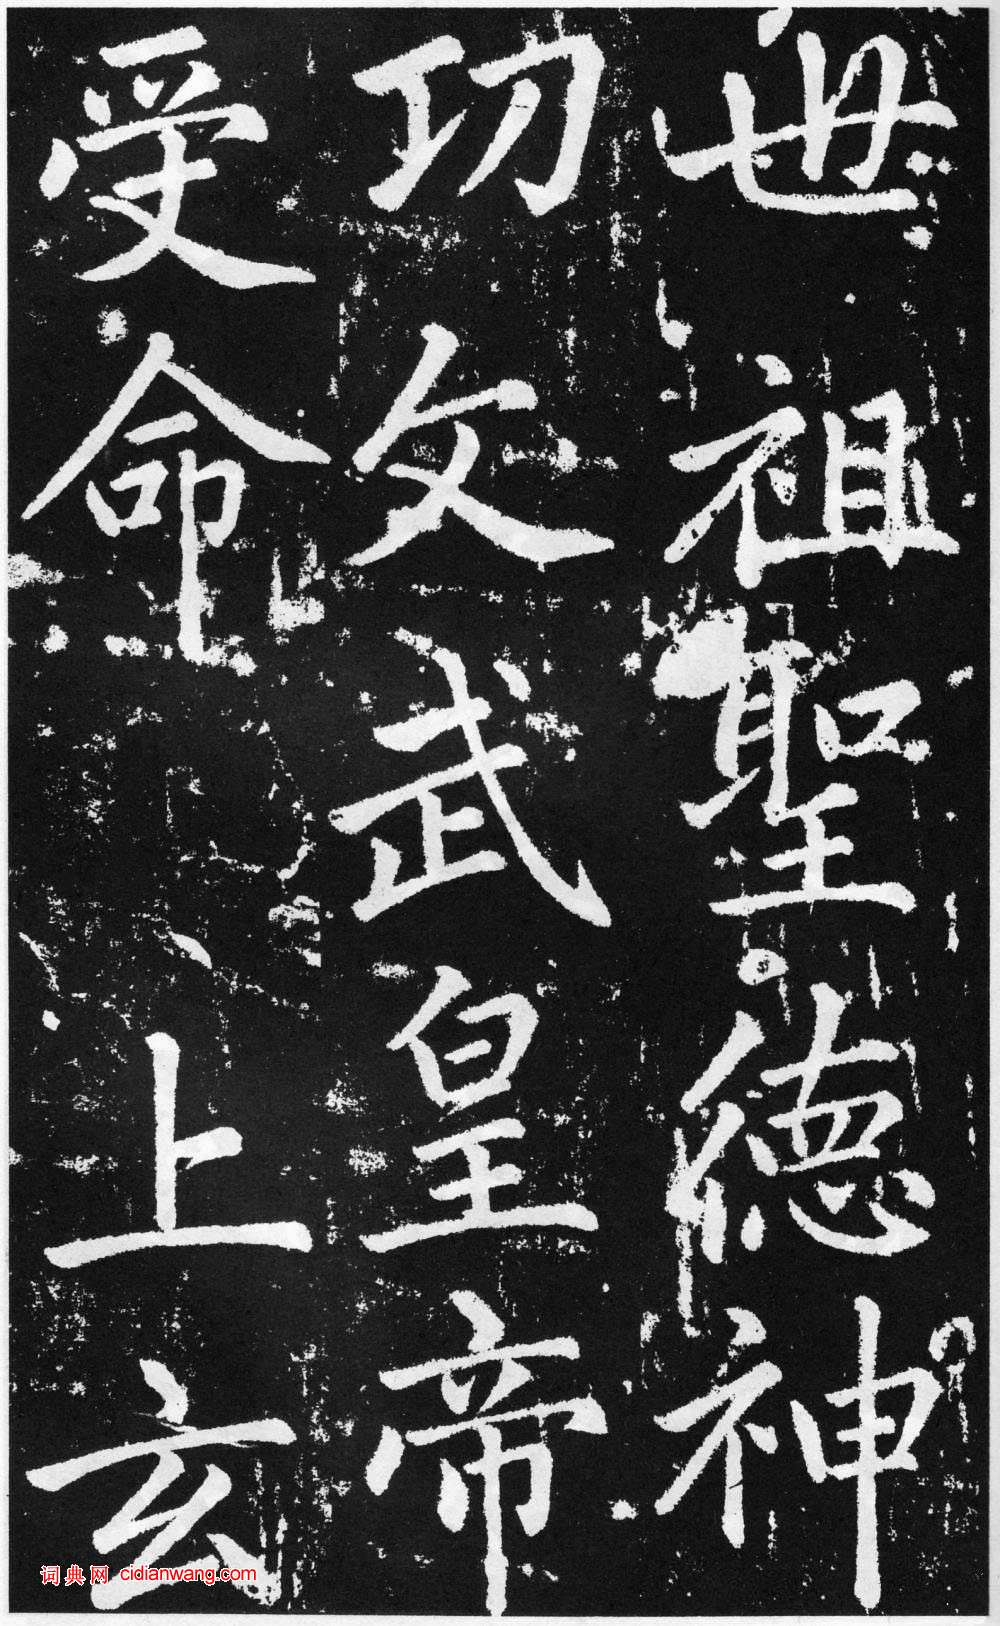 世祖聖德神
功文武皇帝
受命上玄
词典网 cidianwang.com